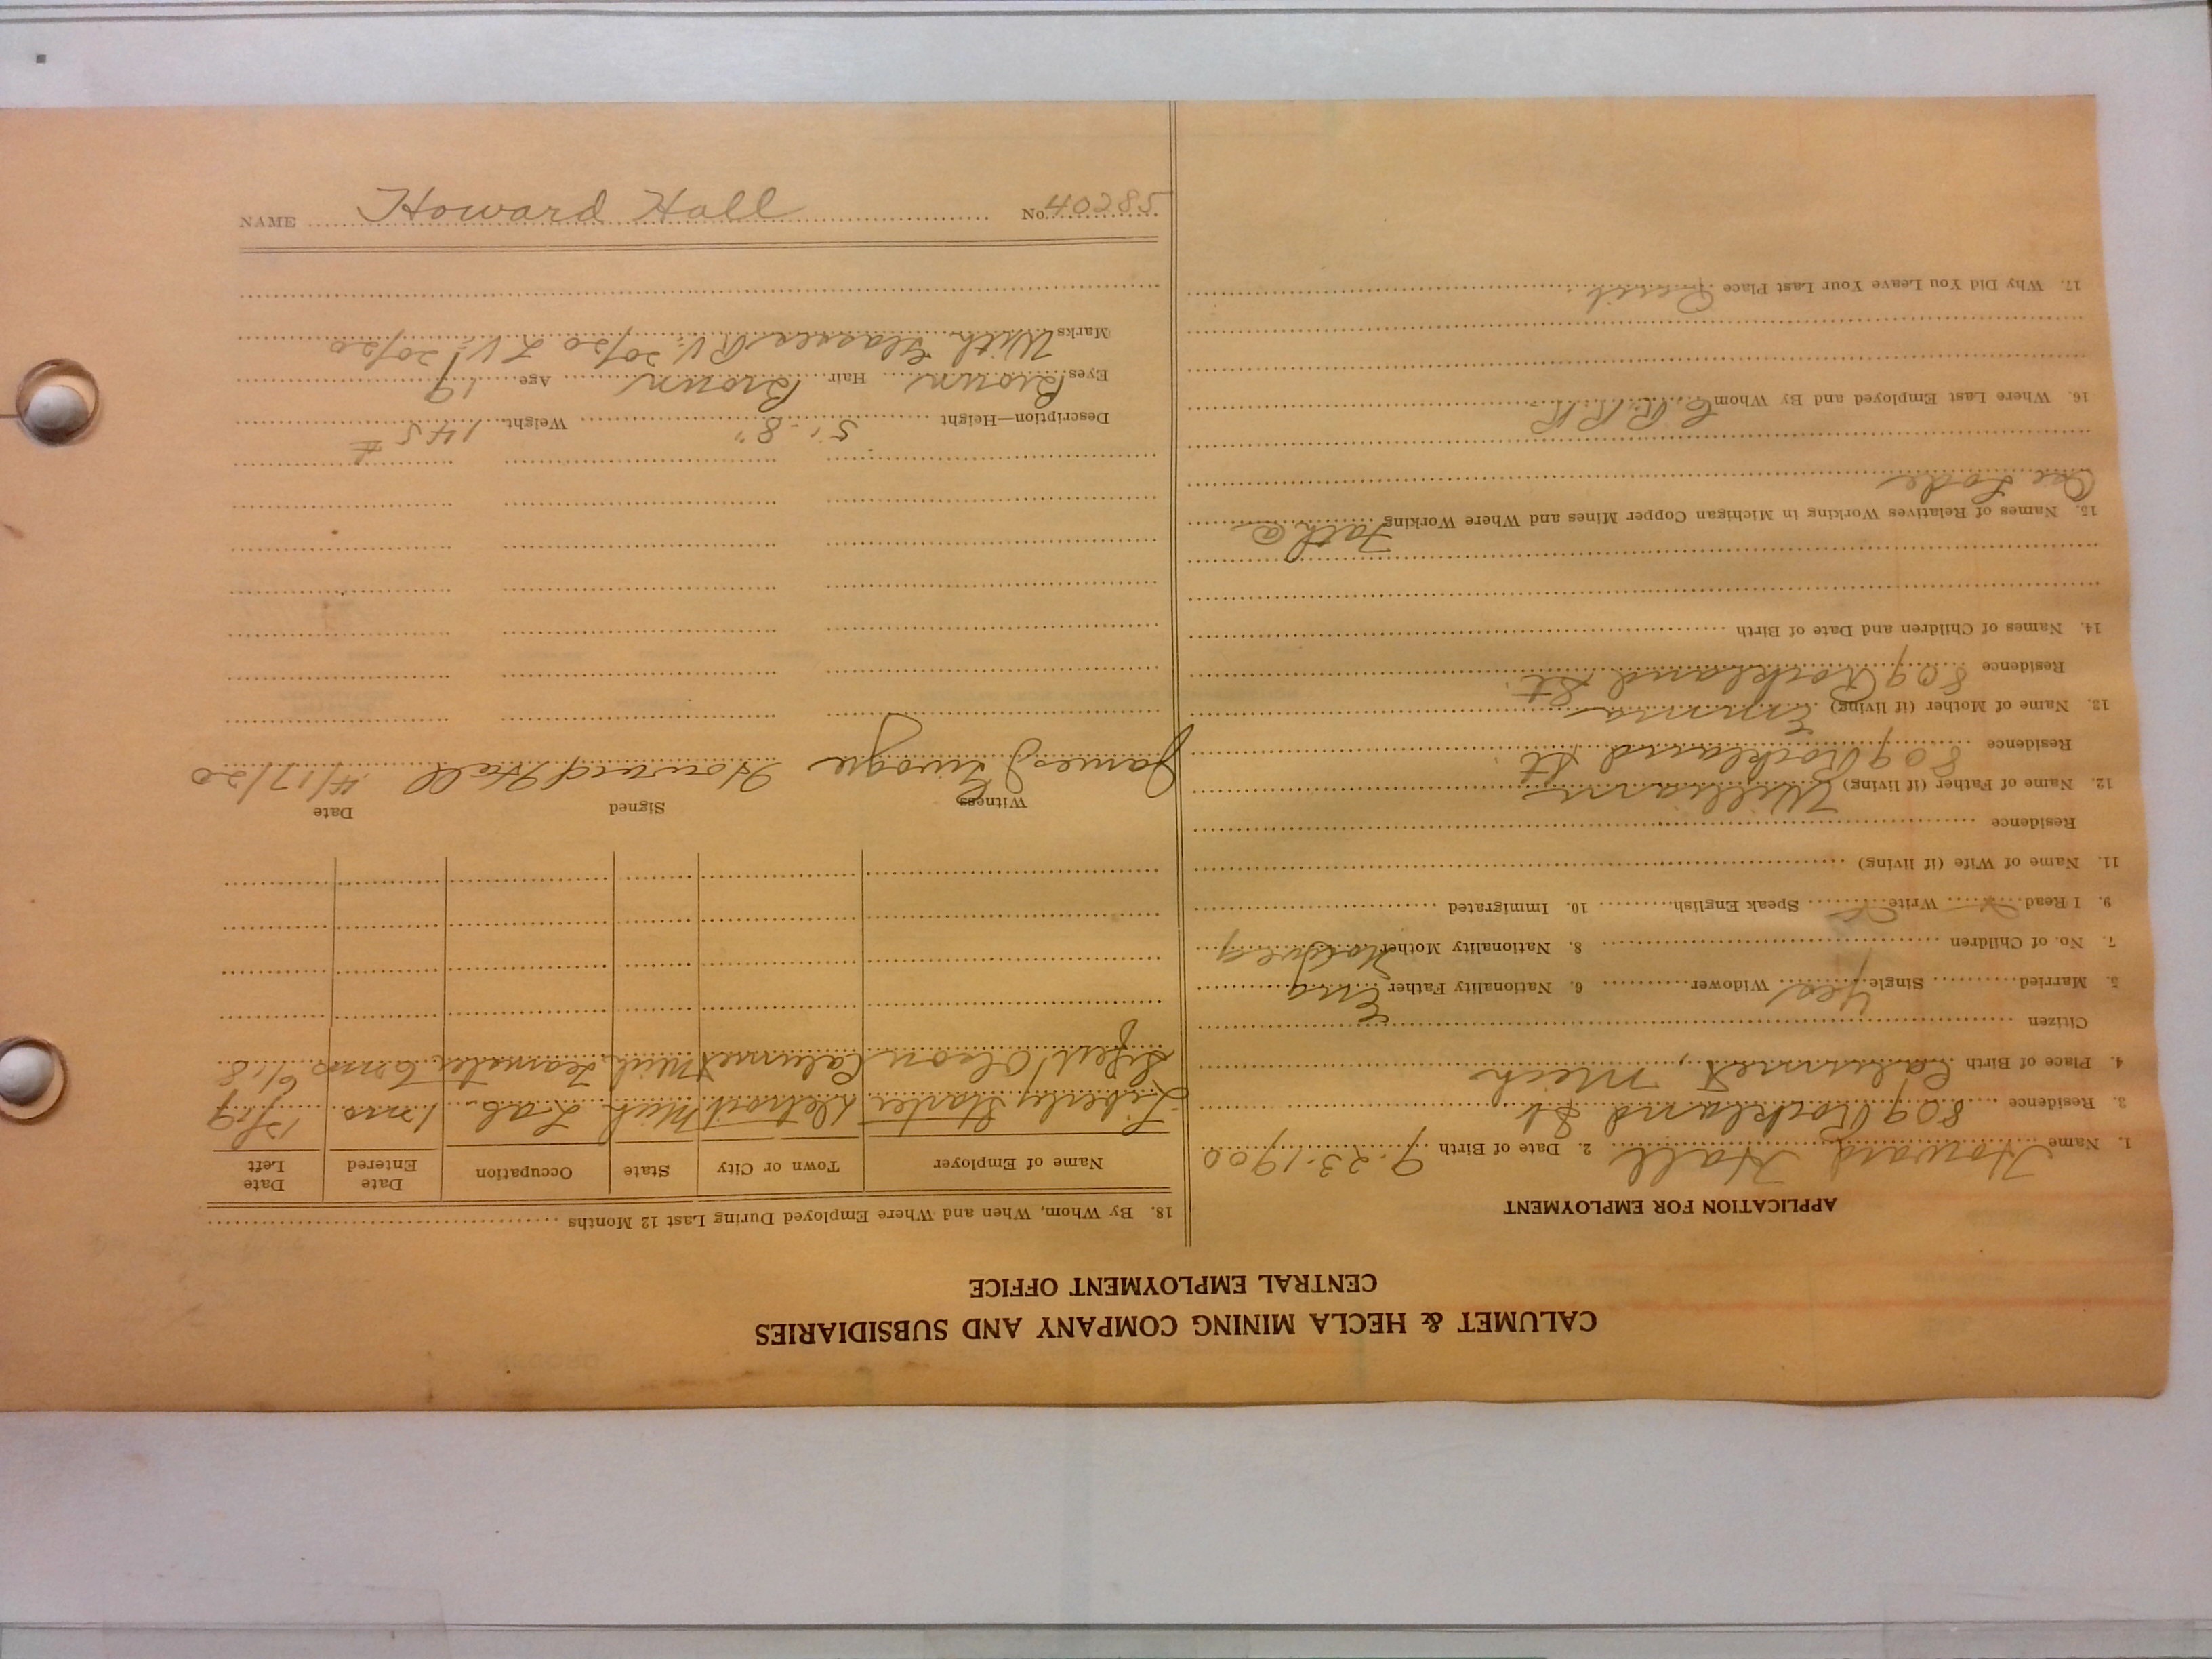 CALUMET & HECLA MINING COMPANY AND SUBSIDIARIES
CENTRAL EMPLOYMENT OFFICE
APPLICATION FOR EMPLOYMENT
1. Name Howard Hall 2. Date of Birth 9-23-1900
3. Residence 809 Rockland St
4. Place of Birth Calumet, Mich
Citizen
5. Married Single Yes Widower 6. Nationality Father Eng
7. No. of Children 8. Nationality Mother
9. I Read Write Speak English 10. Immigrated
11. Name of Wife (if living)
Residence
12. Name of Father (if living) William
Residence 809 Rockland St.
13. Name of Mother (if living) Emma
Residence 809 Rockland St.
14. Names of Children and Date of Birth
15. Names of Relatives Working in Michigan Copper Mines and Where Working Father
Lode
16. Where Last Employed and By Whom C.R.R.R.
17. Why Did You Leave Your Last Place Quit
18. By Whom, When and Where Employed During Last 12 Months
Name of Employer Town or City State Occupation Date Entered Date Left
Liberty Starter Detroit Mich Mich Lab. 1 mo. 12/19
Olson Calumet Mich Teamster 6 mo 6/18
Witness Signed Date
James Howard Hall 4/17/20
Description—Height 5'-8" Weight 145#
Eyes Brown Hair Brown Age 19
Marks With Glasses R.V. 20/20 L.V. 20/20
NAME Howard Hall No. 40285